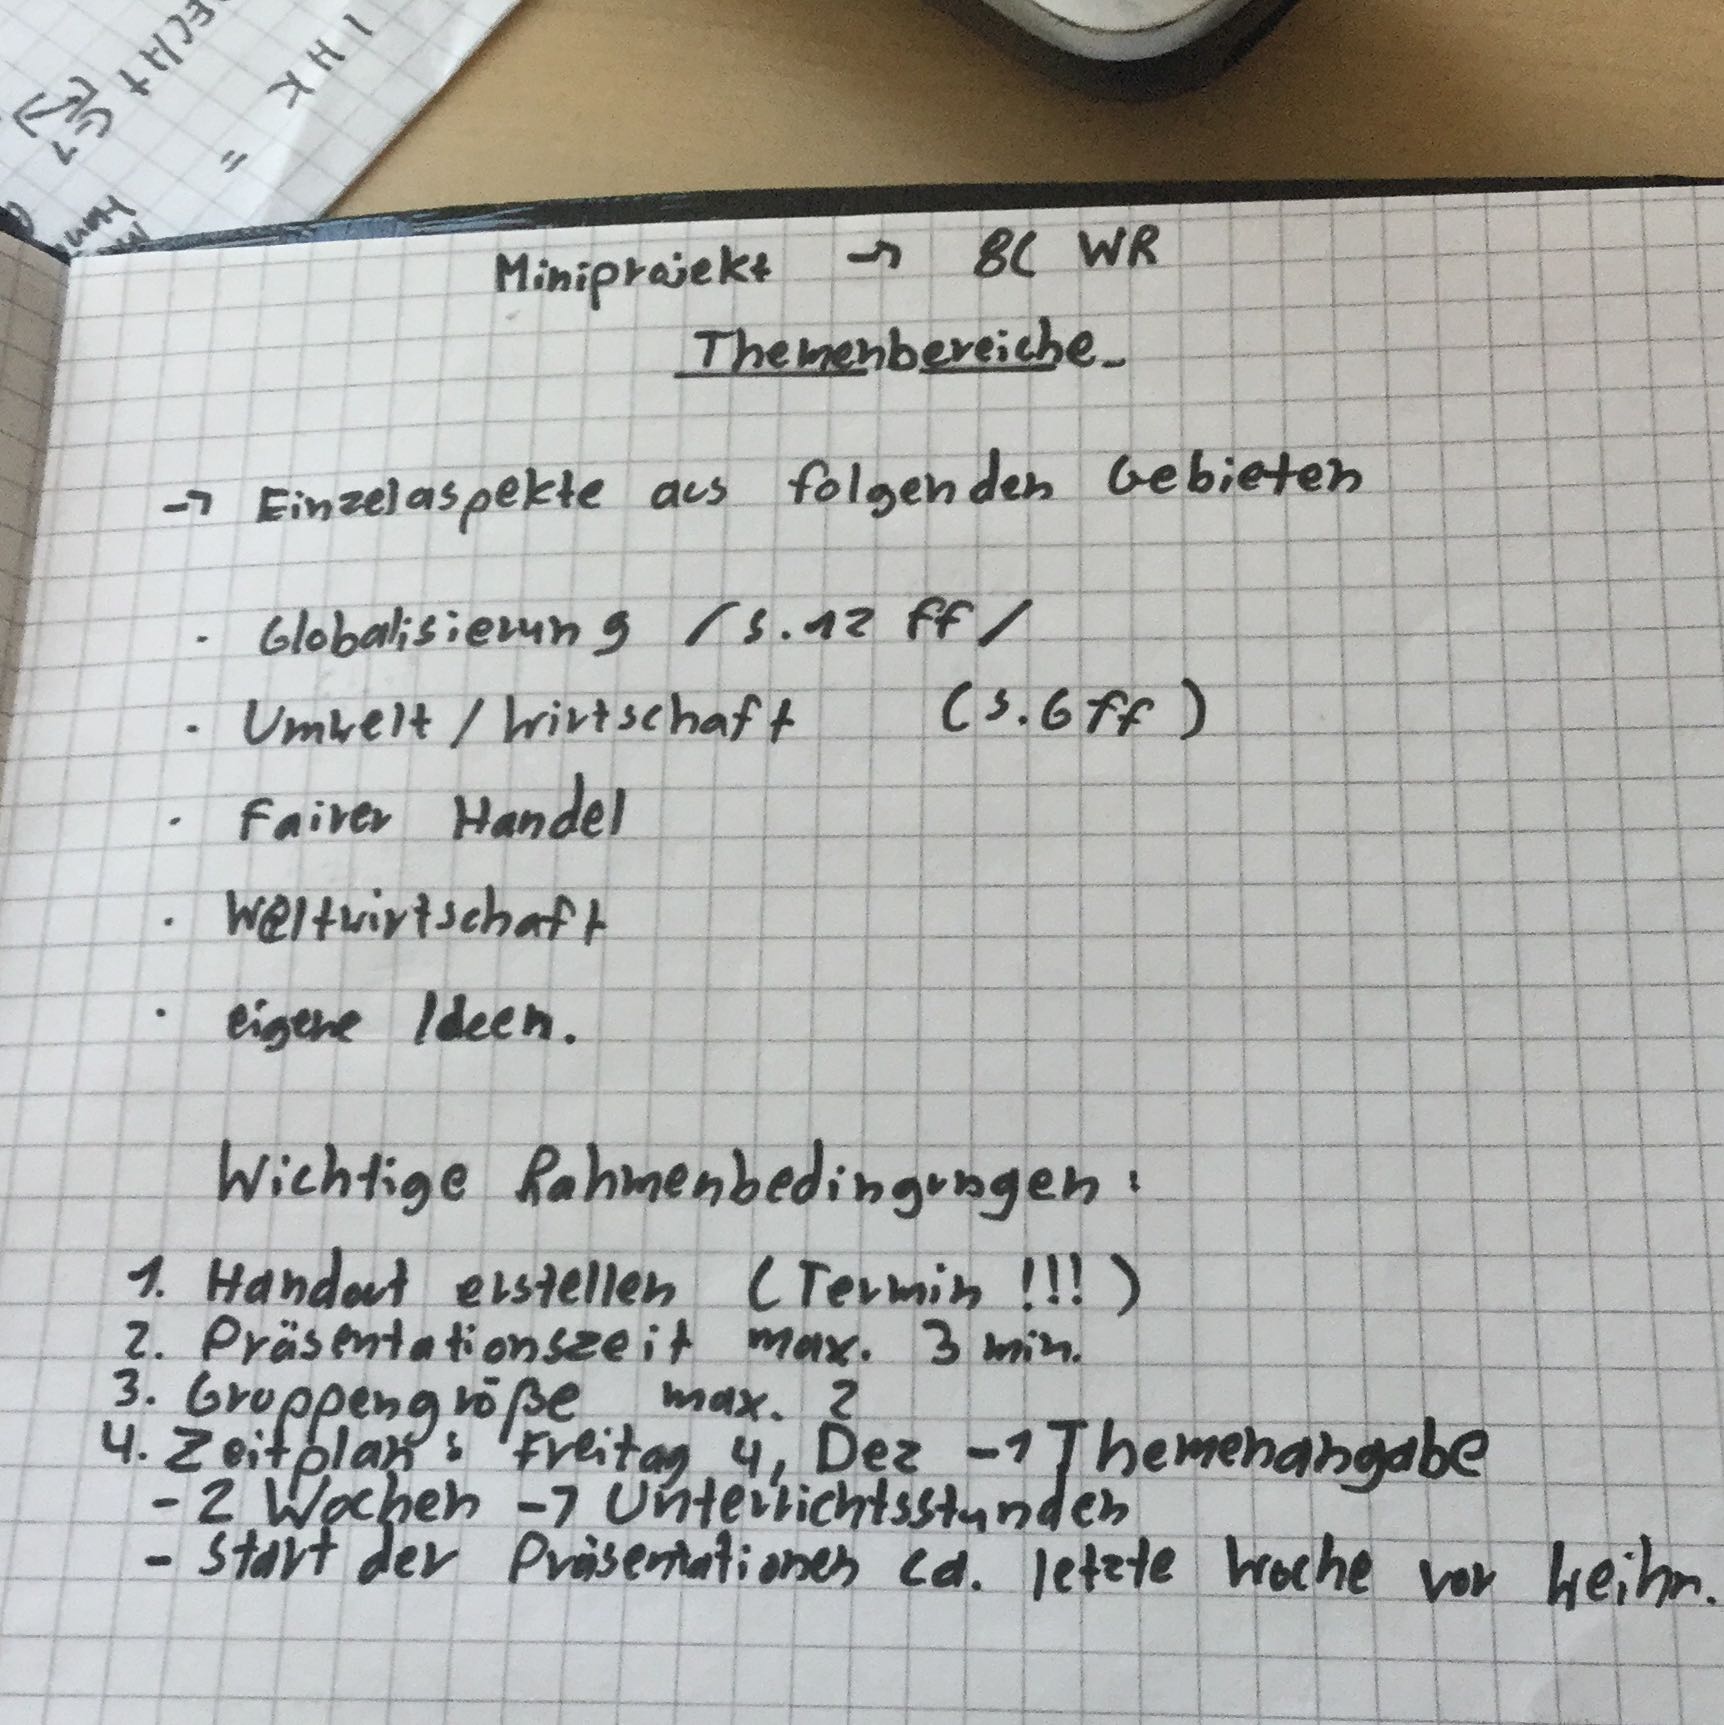 IHK
=
Miniprojekt → 8C WR
Themenbereiche
→ Einzelaspekte aus folgenden Gebieten
· Globalisierung /S.12 ff/
· Umwelt/Wirtschaft (S.6ff)
· Fairer Handel
· Weltwirtschaft
· eigene Ideen.
Wichtige Rahmenbedingungen:
1. Handout erstellen (Termin!!!)
2. Präsentationszeit max. 3 min.
3. Gruppengröße max. 2
4. Zeitplan: Freitag 4, Dez → Themenangabe
- 2 Wochen → Unterrichtsstunden
- Start der Präsentationen ca. letzte Woche vor Weihn.